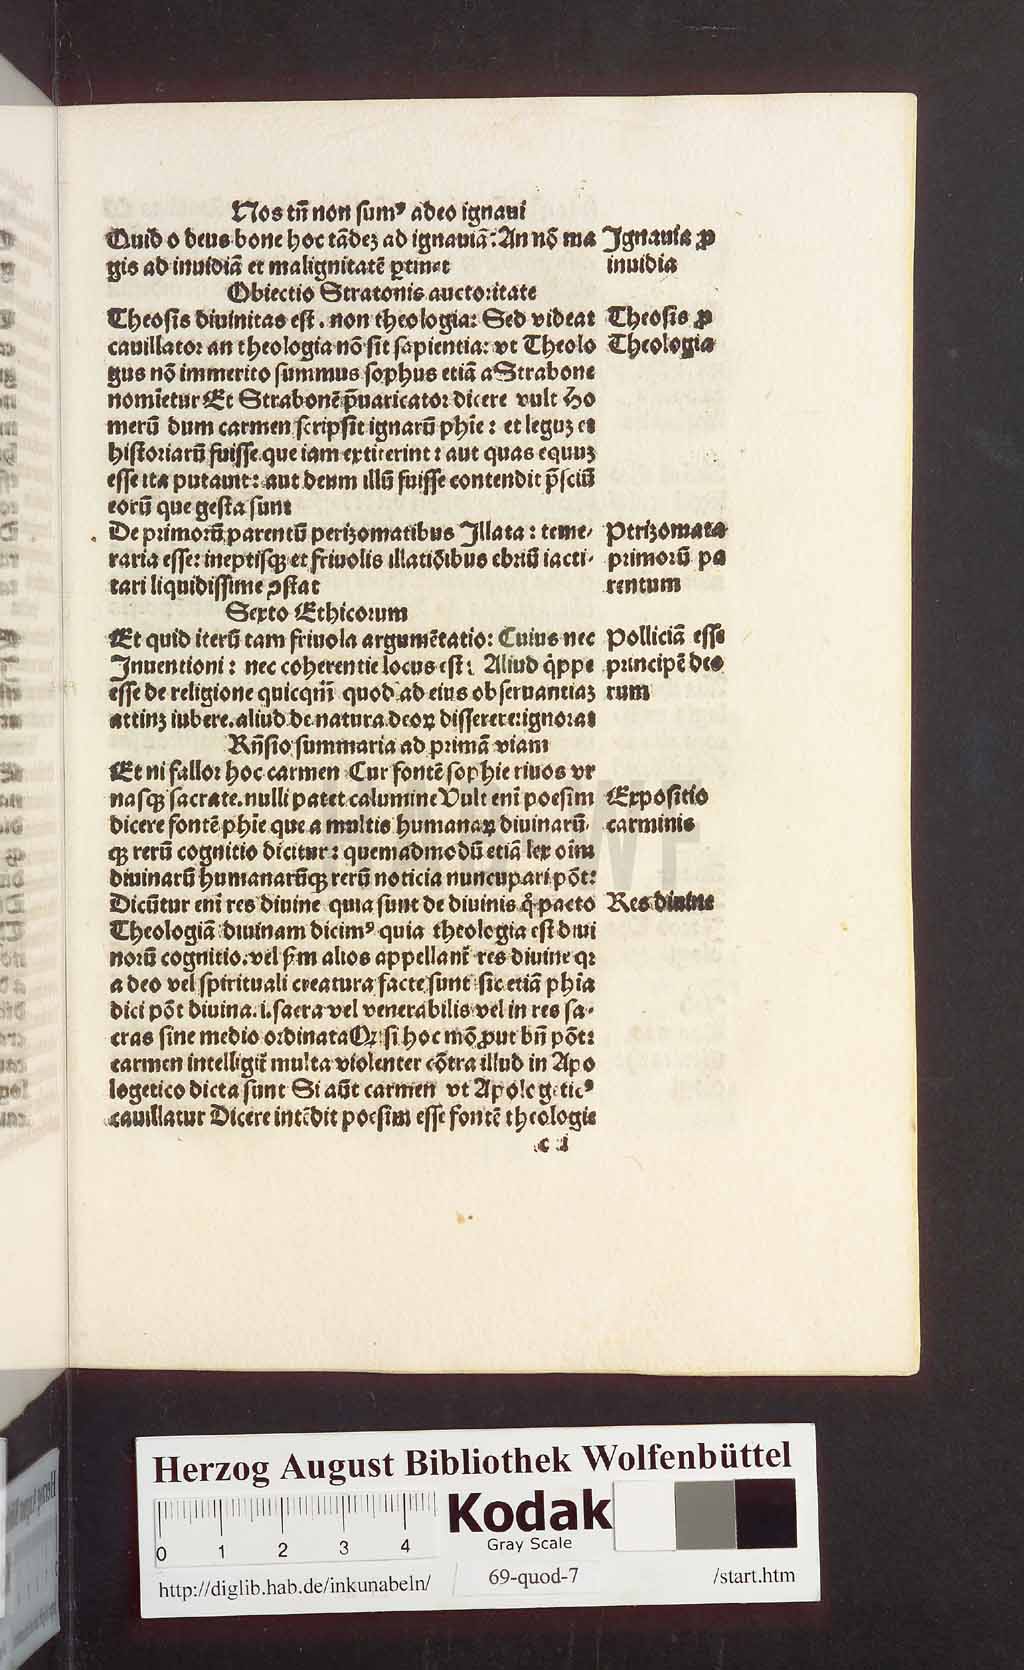 Nos tñ non sumꝰ adeo ignaui
Quid o deus bone hoc tādeꝫ ad ignauiā: An nō ma
gis ad inuidiā et malignitatē ꝑtinet
Ignauia ꝓ
inuidia
Obiectio Stratonis auctoritate
Theosis diuinitas est . non theologia: Sed videat
cauillator an theologia nō sit sapientia: vt Theolo
gus nō immerito summus sophus etiā a Strabone
nomīetur Et Strabonē p̄uaricator dicere vult Ho
merū dum carmen scripsit ignarū phīe : et leguꝫ et
historiarū fuisse que iam extiterint : aut quas equuꝫ
esse ita putauit : aut deum illū fuisse contendit p̄sciū
eorū que gesta sunt
Theosis ꝓ
Theologia
De primorū parentū perizomatibus Illata : teme-
raria esse: ineptisqꝫ et friuolis illatiōibus ebriū iacti-
tari liquidissime ꝯstat
Ptrizomata
primorū pa
rentum
Sexto Ethicorum
Et quid iterū tam friuola argumētatio: Cuius nec
Inuentioni : nec coherentie locus est : Aliud q̇ppe
esse de religione quicqm̄ quod ad eius obseruantiaꝫ
attinꝫ iubere. aliud de natura deoꝝ disserere: ignorat
Polliciā esse
principē deo
rum
Rñsio summaria ad primā viam
Et ni fallor hoc carmen Cur fontē sophie riuos vr
nasqꝫ sacrate. nulli patet calumine Vult enī poesim
dicere fontē phīe que a multis humanaꝝ diuinarū
qꝫ rerū cognitio dicitur : quemadmodū etiā lex oīm
diuinarū humanarūqꝫ rerū noticia nuncupari pōt:
Expositio
carminis
Dicūtur enī res diuine quia sunt de diuinis q̊ pacto
Theologiā diuinam dicimꝰ quia theologia est diui
norū cognitio. vel ẜm alios appellanť res diuine qꝛ
a deo vel spirituali creatura facte sunt sic etiā phīa
dici pōt diuina. i. sacra vel venerabilis vel in res sa-
cras sine medio ordinata Qꝛ si hoc mō ꝓut bñ pōt:
carmen intelligiť multa violenter cōtra illud in Apo
logetico dicta sunt Si aūt carmen vt Apologeticꝰ
cauillatur Dicere intēdit poesim esse fontē theologie
Res diuine
c i
HAB WF
Herzog August Bibliothek Wolfenbüttel
Kodak
Gray Scale
0 1 2 3 4
http://diglib.hab.de/inkunabeln/ 69-quod-7 /start.htm